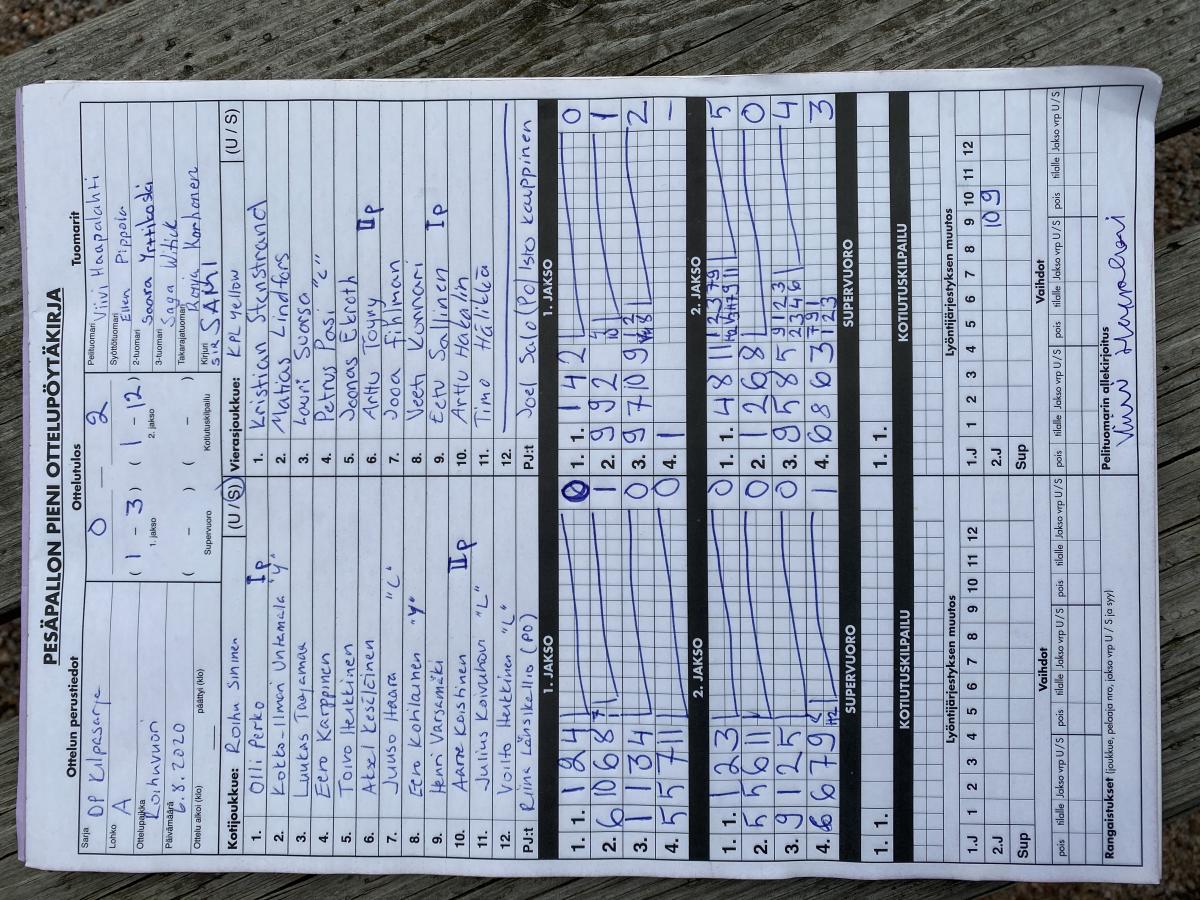 PESÄPALLON PIENI OTTELUPÖYTÄKIRJA
Ottelun perustiedot
Sarja DP Kilpasarja
Lohko A
Ottelupaikka Roihuvuori
Päivämäärä 6.8.2020
Ottelu alkoi (klo) päättyi (klo)
Ottelutulos
0 — 2
( 1 - 3 ) ( 1 - 12 )
1. jakso 2. jakso
( - ) ( - )
Supervuoro Kotiutuskilpailu
Tuomarit
Pelituomari Viivi Haapalahti
Syöttötuomari Ellen Pippola
2-tuomari Saara Yrttikoski
3-tuomari Saga
Takarajatuomari Ronja Korhonen
Kirjuri SIR SAMI
Kotijoukkue: Roihu Sininen (U / S)
1. Olli Perko Ip
2. Kokko-Ilmari Untamala "Y"
3. Luukas Taajamaa
4. Eero Karppinen
5. Toivo Henkkinen
6. Aksel Keseleinen
7. Juuso Haara "L"
8. Eero Kohlainen "Y"
9. Henri Varsamäki
10. Aarre Koistinen IIp
11. Julius Koivuhovi "L"
12. Voitto Hakkinen "L"
PJ:t Riina Länsikallio (PO)
Vierasjoukkue: KPL yellow (U / S)
1. Kristian Stenstrand
2. Matias Lindfors
3. Lauri Suossa
4. Petrus Pasi "L"
5. Joonas Ekroth
6. Arttu Töyry IIp
7. Jooa Fihlman
8. Veeti Kunnari
9. Eetu Sallinen Ip
10. Arttu Hakalin
11. Timo Hälikkä
12.
PJ:t Joel Salo (PO) Isto Kauppinen
1. JAKSO 1. JAKSO
1. 1. 1 2 4 0 1. 1. 1 4 2 0
2. 6 10 6 8 1 2. 9 9 2 1
3. 1 1 3 4 0 3. 9 7 10 9 2
4. 5 5 7 11 0 4. 1 -
2. JAKSO 2. JAKSO
1. 1. 1 2 3 0 1. 1. 1 4 8 11 5
2. 5 5 6 11 0 2. 1 2 6 8 0
3. 9 1 2 5 0 3. 9 5 8 5 4
4. 6 6 7 9 1 4. 6 8 6 3 3
SUPERVUORO SUPERVUORO
1. 1. 1. 1.
KOTIUTUSKILPAILU KOTIUTUSKILPAILU
Lyöntijärjestyksen muutos Lyöntijärjestyksen muutos
1.J 1 2 3 4 5 6 7 8 9 10 11 12 1.J 1 2 3 4 5 6 7 8 9 10 11 12
2.J 2.J 10 9
Sup Sup
Vaihdot Vaihdot
pois tilalle Jakso vrp U / S pois tilalle Jakso vrp U / S pois tilalle Jakso vrp U / S pois tilalle Jakso vrp U / S pois tilalle Jakso vrp U / S pois tilalle Jakso vrp U / S
Rangaistukset (joukkue, pelaaja nro, jakso vrp U / S ja syy)
Pelituomarin allekirjoitus
Viivi Haapalahti